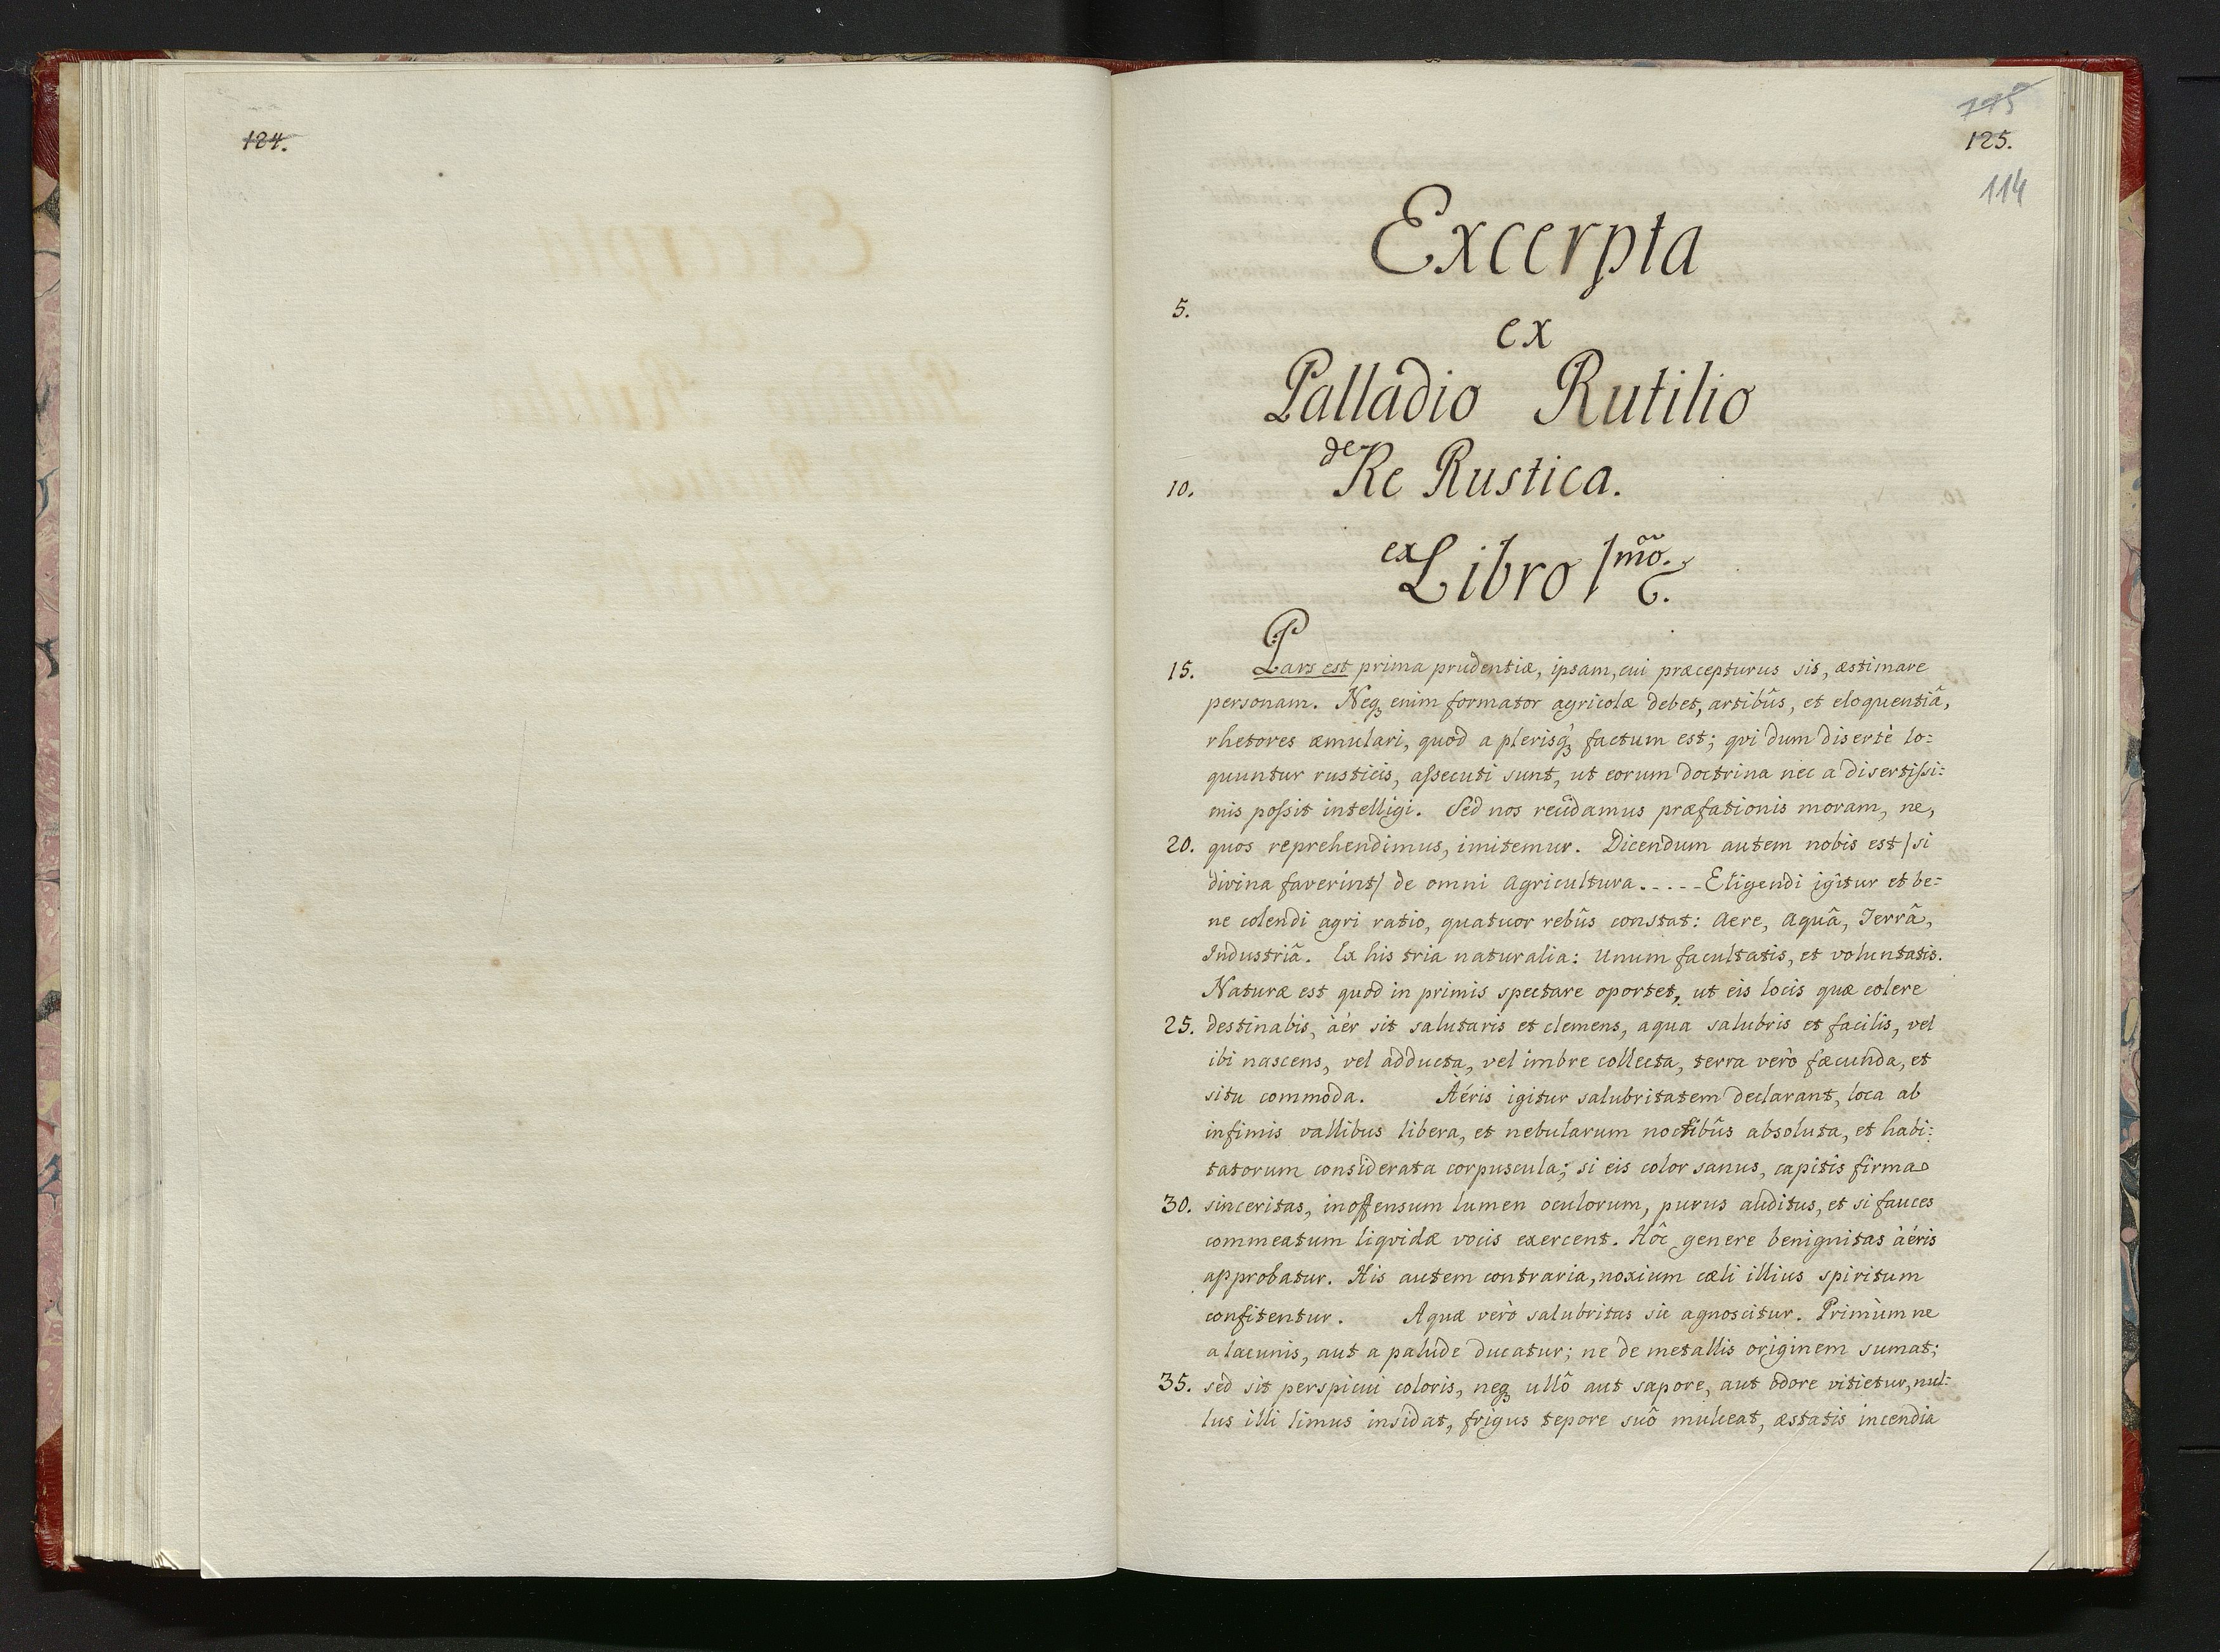 124.
115
125.
114
Excerpta
5.
ex
Palladio Rutilio
de Re Rustica.
10.
ex Libro 1mõ.
15. Pars est prima prudentiæ, ipsam, cui præcepturus sis, æstimare
personam. Neq₃ enim formator agricolæ debet, artibûs, et eloquentiâ,
rhetores æmulari, quod a plerisq́₃ factum est; qvi dum disertè lo=
quuntur rusticis, aſsecuti sunt, ut eorum doctrina nec a disertiſsi=
mis poſsit intelligi. Sed nos recidamus præfationis moram, ne,
20. quos reprehendimus, imitemur. Dicendum autem nobis est / si
divina faverint / de omni Agricultura.----Eligendi igitur et be=
ne colendi agri ratio, quatuor rebûs constat: Aere, Aquâ, Terrâ,
Industriâ. Ex his tria naturalia: Unum facultatis, et voluntatis.
Naturæ est quod in primis spectare oportet, ut eis locis quæ colere
25. destinabis, àér sit salutaris et clemens, aqua salubris et facilis, vel
ibi nascens, vel adducta, vel imbre collecta, terra verò fæcunda, et
situ commoda. Àéris igitur salubritatem declarant, loca ab
infimis vallibus libera, et nebularum noctibûs absoluta, et habi=
tatorum considerata corpuscula; si eis color sanus, capitis firma
30. sinceritas, inoffensum lumen oculorum, purus auditus, et si fauces
commeatum liqvidæ vocis exercent. Hôc genere benignitas àéris
approbatur. His autem contraria, noxium cæli illius spiritum
confitentur. Aquæ verò salubritas sic agnoscitur. Primùm ne
a lacunis, aut a palude ducatur; ne de metallis originem sumat;
35. sed sit perspicui coloris, neq₃ ullô aut sapore, aut odore vitietur, nul=
lus illi limus insidat, frigus tepore suô mulceat, æstatis incendia